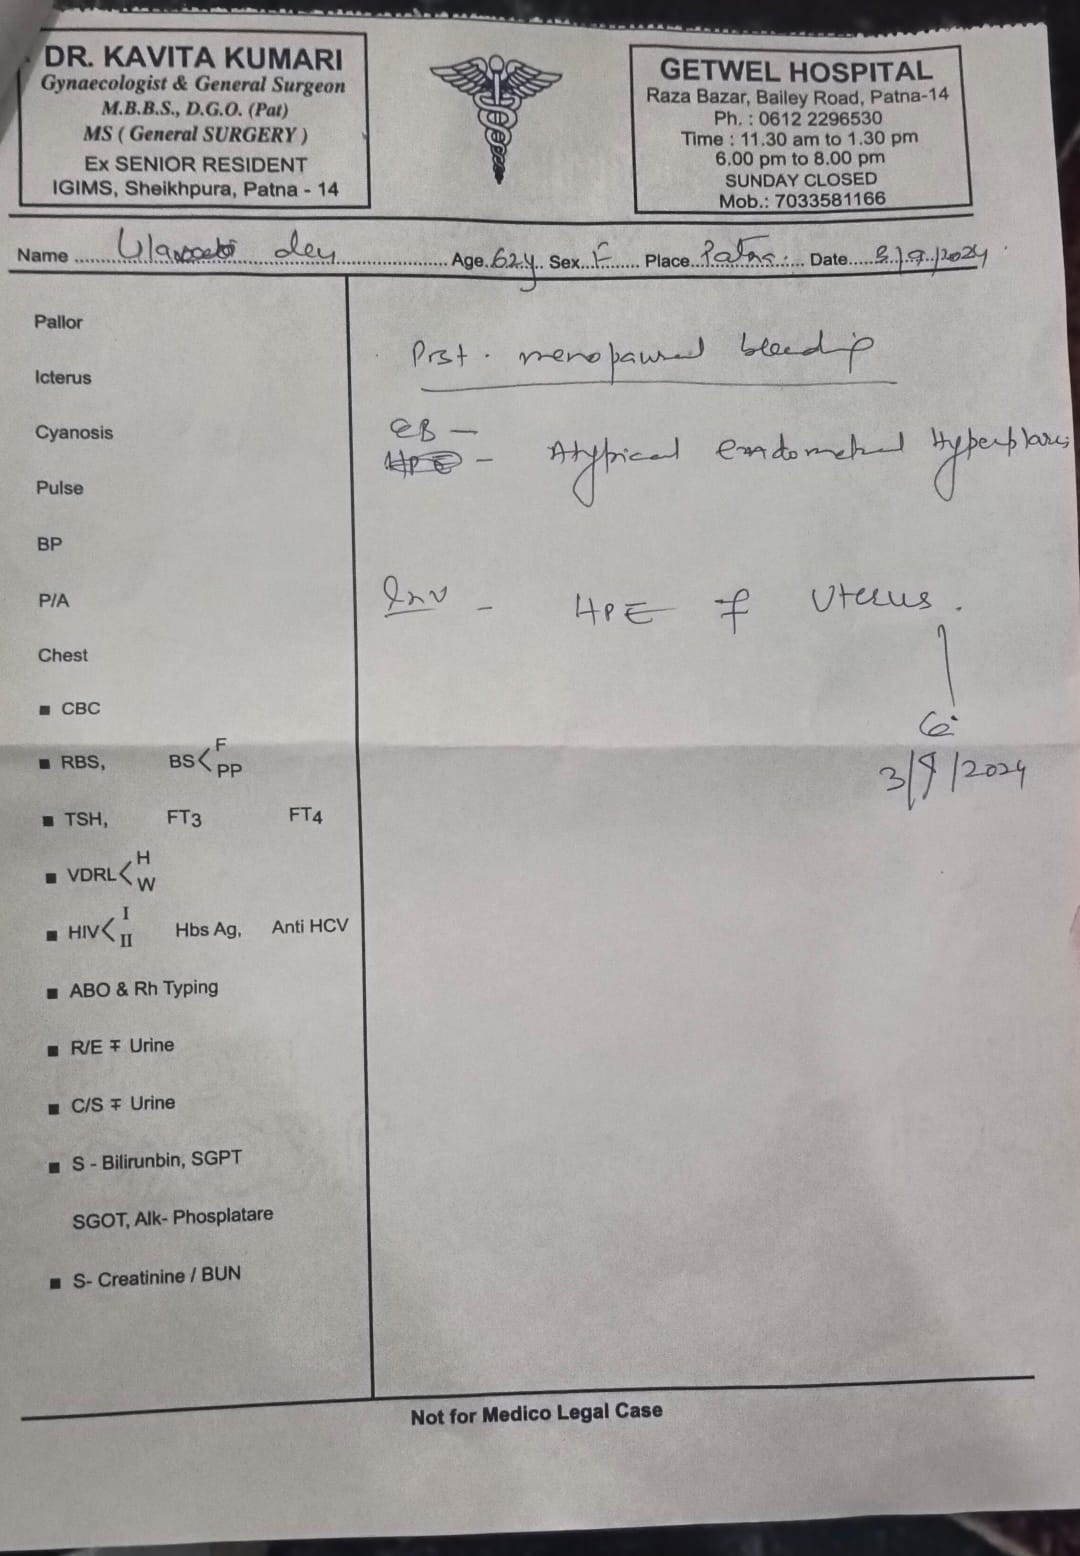 DR. KAVITA KUMARI
Gynaecologist & General Surgeon
M.B.B.S., D.G.O. (Pat)
MS ( General SURGERY )
Ex SENIOR RESIDENT
IGIMS, Sheikhpura, Patna - 14
GETWEL HOSPITAL
Raza Bazar, Bailey Road, Patna-14
Ph. : 0612 2296530
Time : 11.30 am to 1.30 pm
6.00 pm to 8.00 pm
SUNDAY CLOSED
Mob.: 7033581166
Name Age 62y Sex F Place Patna Date 3/9/2024
Post. menopausal bleeding
EB -
- Atypical endometrial Hyperplasia
Inv - HPE of Uterus.
3/9/2024
Pallor
Icterus
Cyanosis
Pulse
BP
P/A
Chest
■ CBC
■ RBS, BS< F PP
■ TSH, FT3 FT4
■ VDRL< H W
■ HIV< I II Hbs Ag, Anti HCV
■ ABO & Rh Typing
■ R/E ∓ Urine
■ C/S ∓ Urine
■ S - Bilirunbin, SGPT
SGOT, Alk- Phosplatare
■ S- Creatinine / BUN
Not for Medico Legal Case